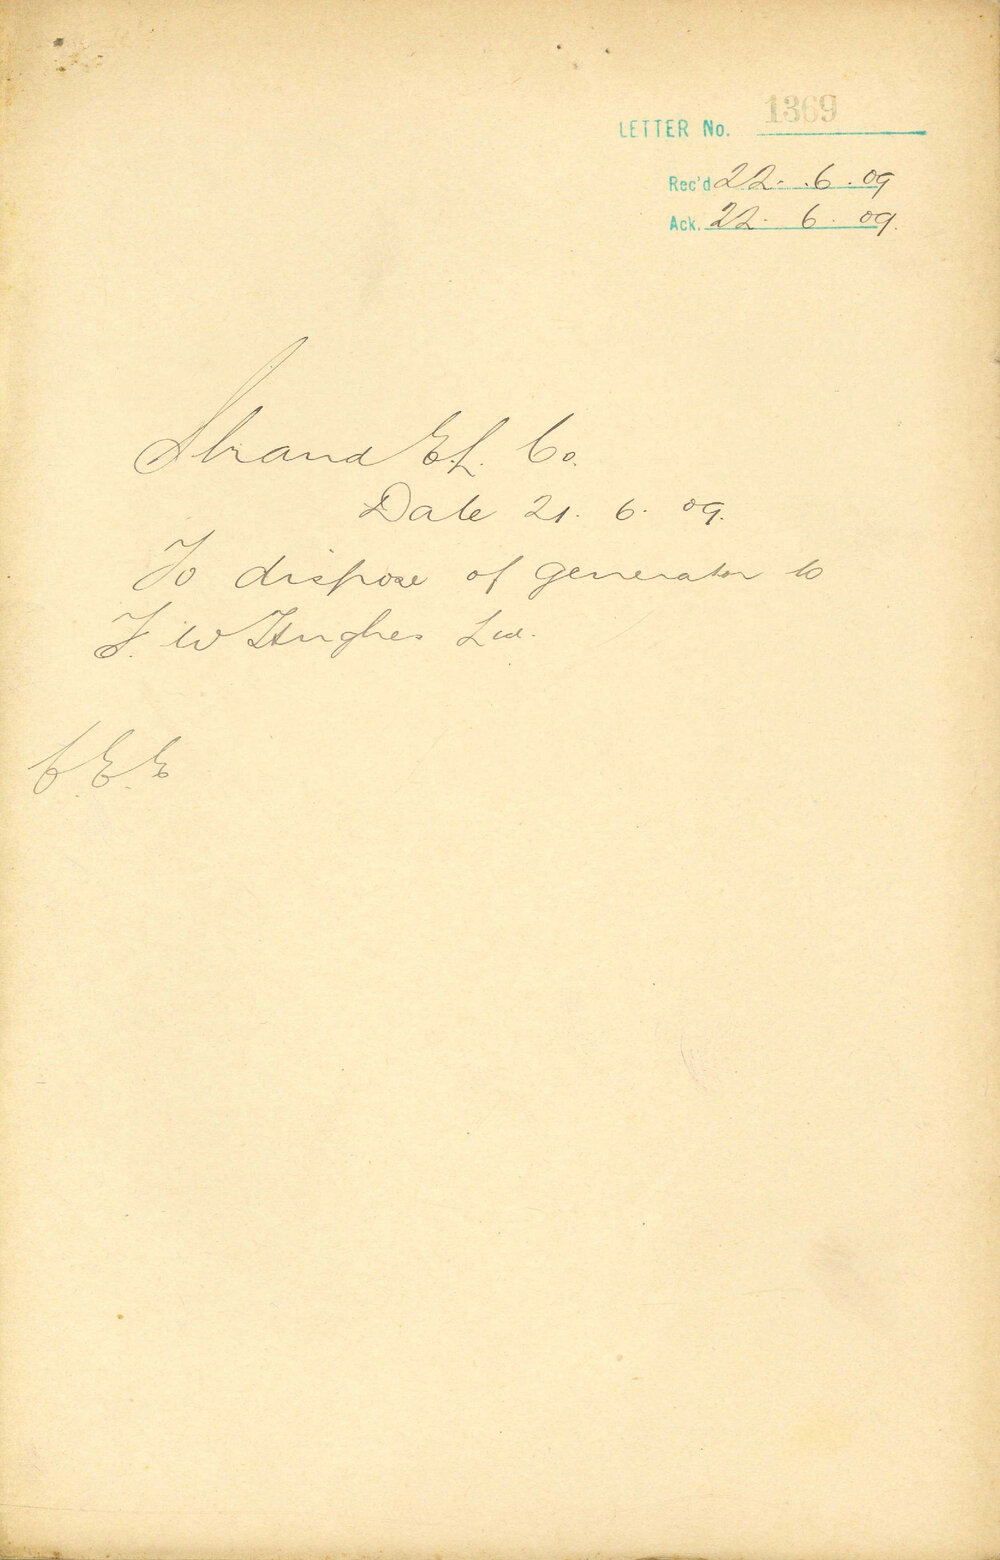 LETTER No. 1369
Rec'd 22. 6. 09
Ack. 22. 6. 09.
Strand E.L. Co.
Date 21. 6. 09.
To dispose of generator to
F. W Hughes Ltd.
C.E.E